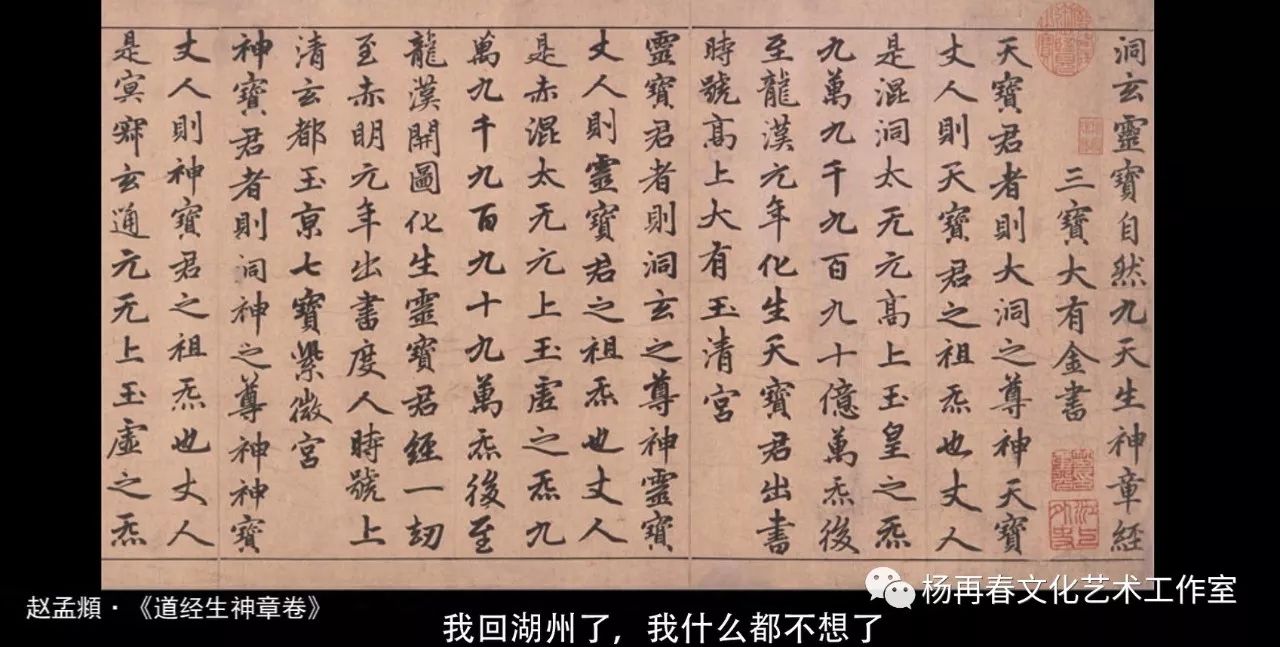 洞玄靈寶自然九天生神章經
三寶大有金書
天寶君者則大洞之尊神天寶
丈人則天寶君之祖炁也丈人
是混洞太无元高上玉皇之炁
九萬九千九百九十億萬炁後
至龍漢元年化生天寶君出書
時號高上大有玉清宮
靈寶君者則洞玄之尊神靈寶
丈人則靈寶君之祖炁也丈人
是赤混太无元上玉虛之炁九
萬九千九百九十九萬炁後至
龍漢開圖化生靈寶君經一劫
至赤明元年出書度人時號上
清玄都玉京七寶紫微宮
神寶君者則洞神之尊神神寶
丈人則神寶君之祖炁也丈人
是冥寂玄通元无上玉虛之炁
杨再春文化艺术工作室
赵孟頫·《道经生神章卷》
我回湖州了，我什么都不想了